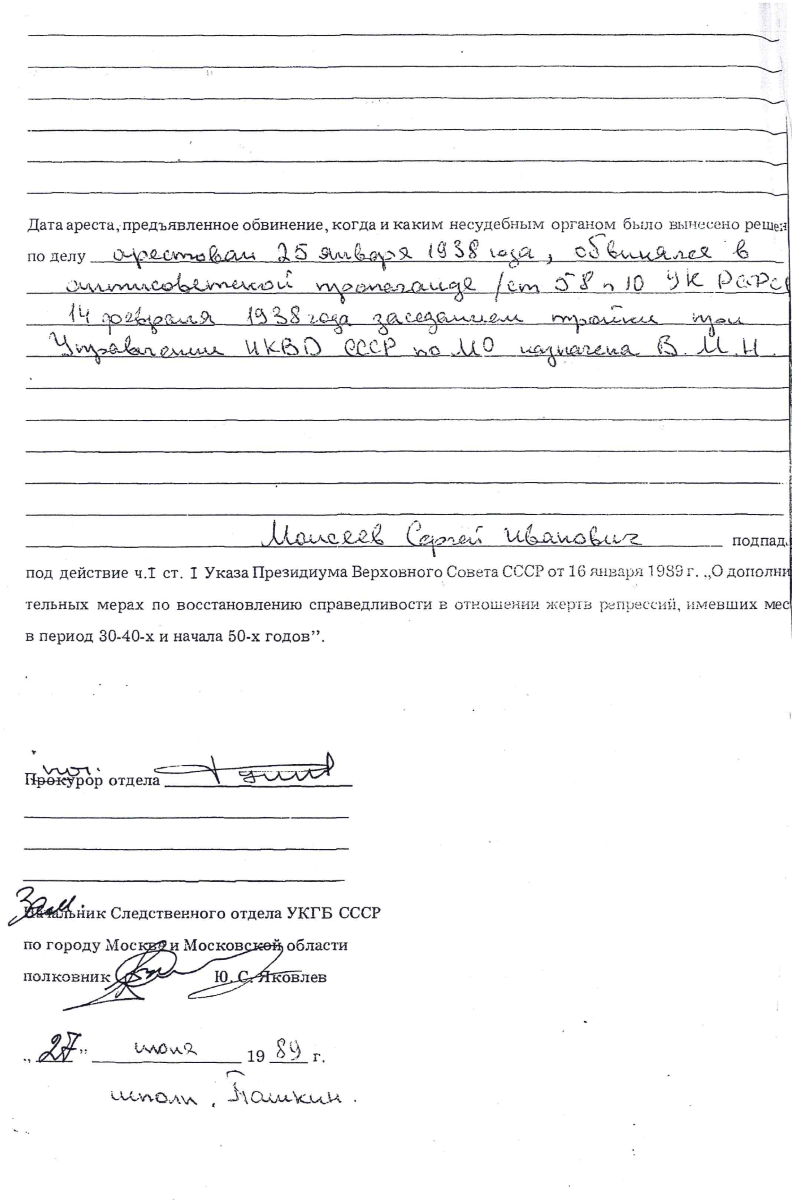 Дата ареста, предъявленное обвинение, когда и каким несудебным органом было вынесено решен
по делу арестован 25 января 1938 года, обвинялся в
антисоветской пропаганде /ст 58 п 10 УК РСФС
14 февраля 1938 года заседанием тройки при
Управлении НКВД СССР по МО назначена В.М.Н.
Моисеев Сергей Иванович подпад.
под действие ч.I ст. I Указа Президиума Верховного Совета СССР от 16 января 1989 г. „О дополни
тельных мерах по восстановлению справедливости в отношении жертв репрессий, имевших мес
в период 30-40-х и начала 50-х годов”.
пом.
Прокурор отдела
Зам.
Начальник Следственного отдела УКГБ СССР
по городу Москве и Московской области
полковник Ю. С. Яковлев
„27” июня 1989 г.
исполн. Пашкин.